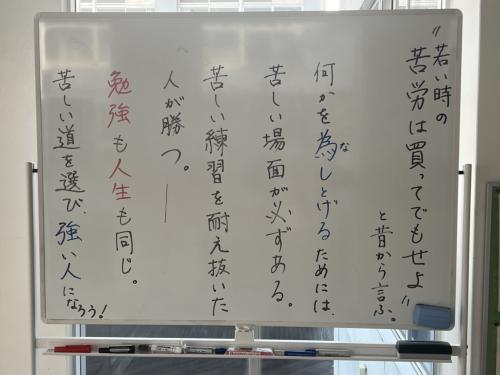 "若い時の
苦労は買ってでもせよ"
と昔から言ふ。
何かを為しとげるためには、
な
苦しい場面が必ずある。
苦しい練習を耐え抜いた
人が勝つ。――
勉強も人生も同じ。
苦しい道を選び、強い人になろう!